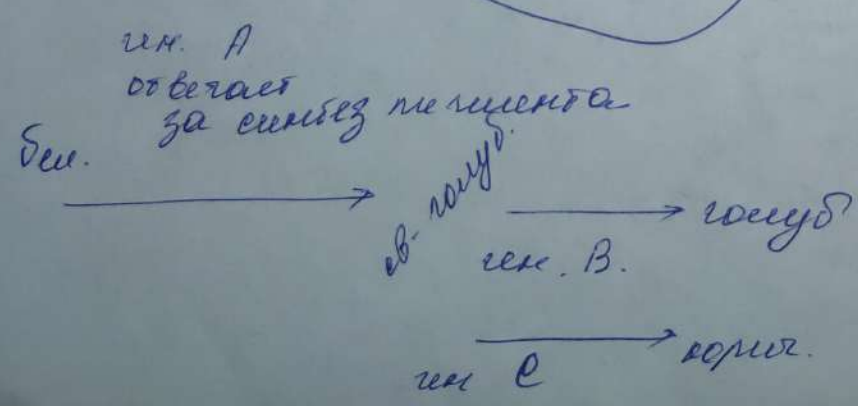 ген. А
отвечает
за синтез пигмента
бел.
св. голуб.
голуб
ген. В.
ген С
корич.